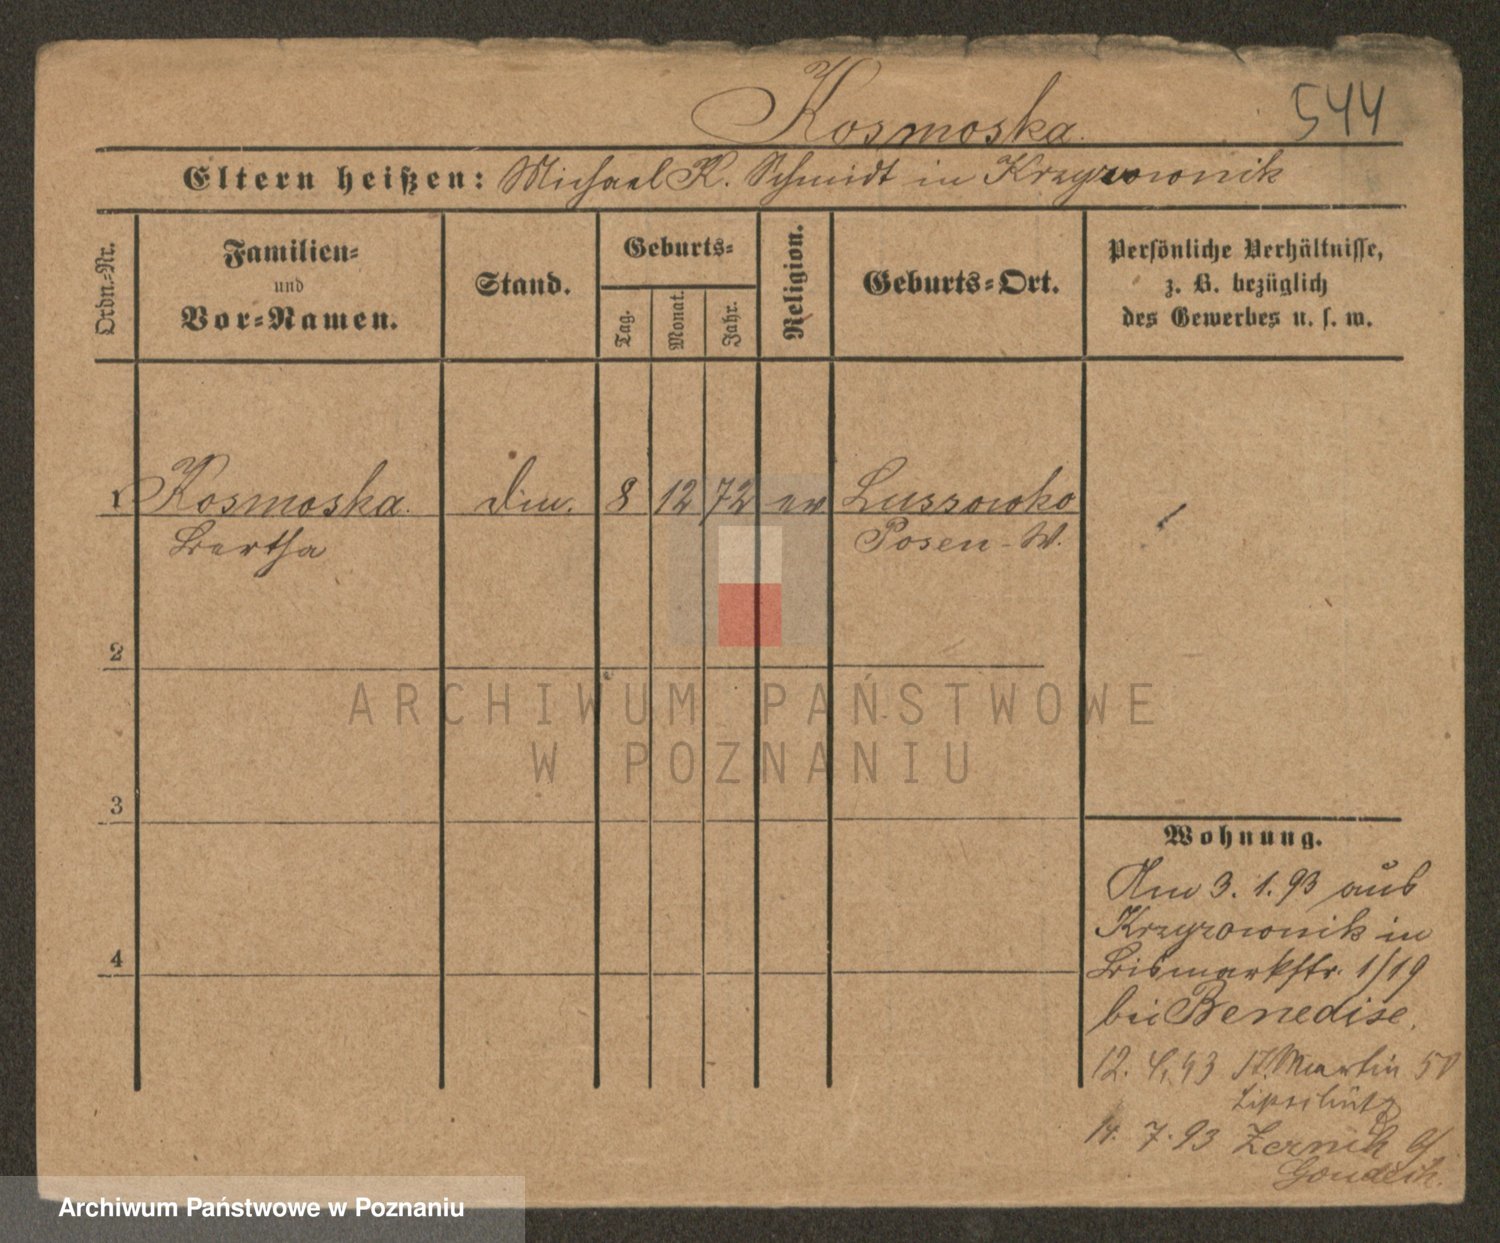 Kosmoska.
544
Eltern heißen: Michael K. Schmidt in Krzyzownik
Ordn.-Nr.
Familien-
und
Vor-Namen.
Stand.
Geburts-
Tag.
Monat.
Jahr.
Religion.
Geburts-Ort.
Persönliche Verhältnisse,
z. B. bezüglich
des Gewerbes u. s. w.
1 Kosmoska. 8 12 72 ev Lussowko
Bertha Posen-W.
2
3
4
ARCHIWUM PAŃSTWOWE
W POZNANIU
Wohnung.
Am 3. 1. 93 aus
Krzyzownik in
Bismarkstr. 1/19
bei Benedise.
12. 4. 93 St. Martin 50
14. 7. 93
Archiwum Państwowe w Poznaniu